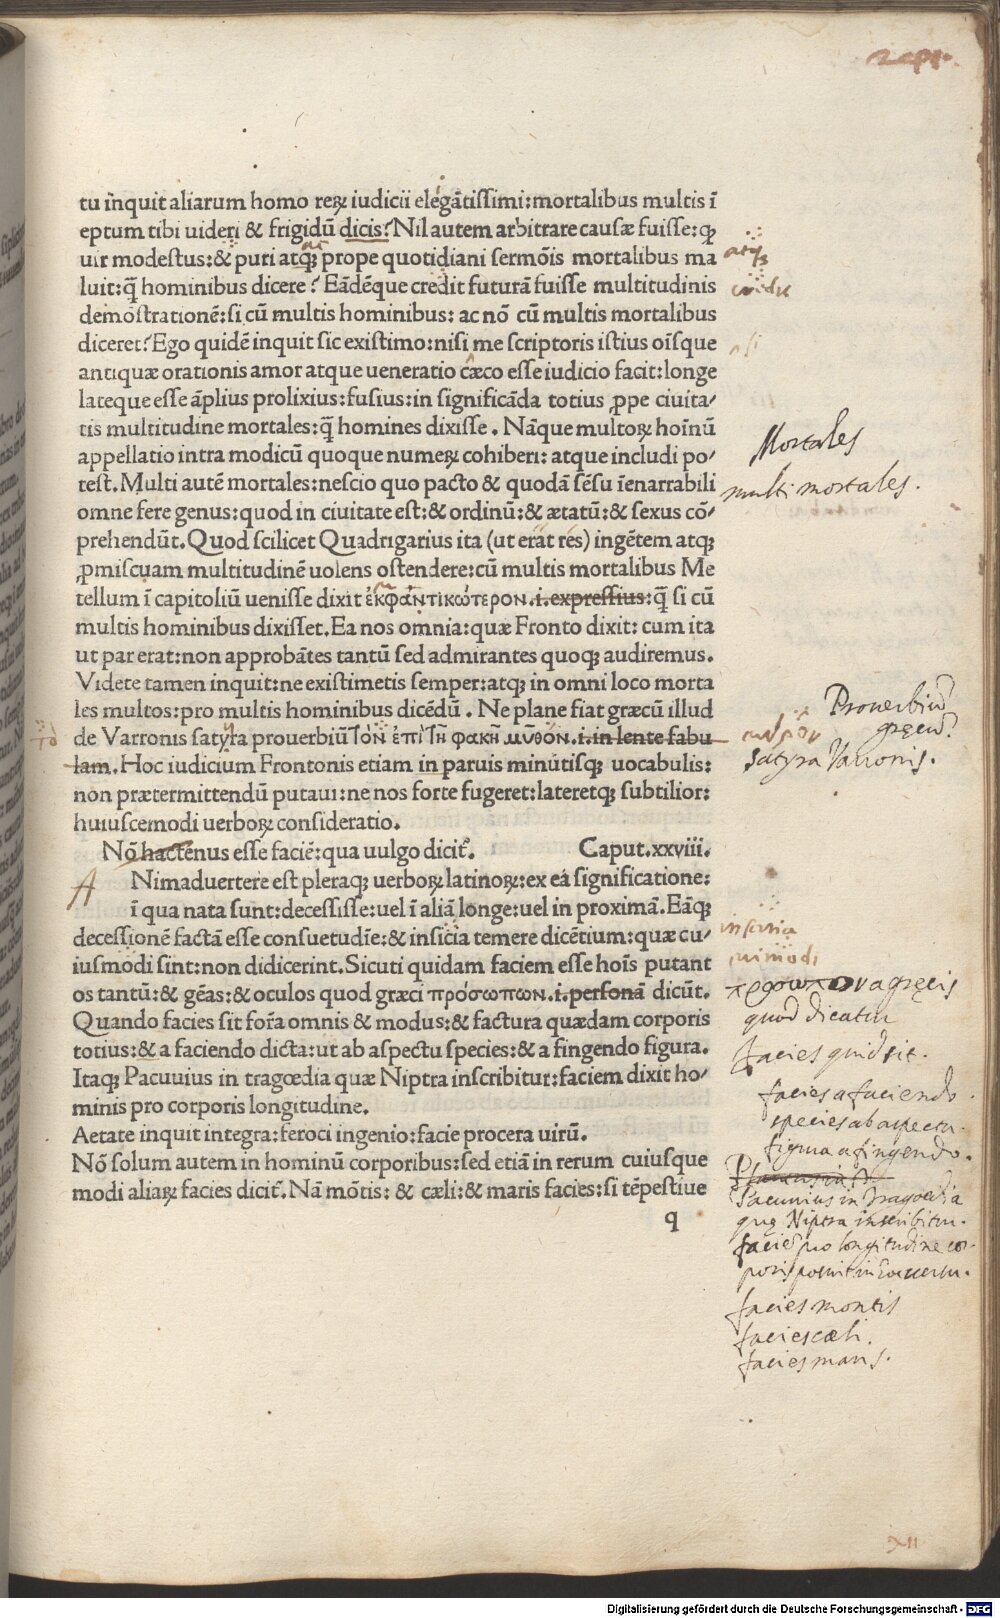 tu inquit aliarum homo reꝝ iudicii elegātissimi: mortalibus multis ī
eptum tibi uideri & frigidū dicis? Nil autem arbitrare causæ fuisse: ꝙ
uir modestus: & puri atqꝫ prope quotidiani sermōis mortalibus ma
atqꝫ
luit: q̄ hominibus dicere? Eādēque credit futurā fuisse multitudinis
demōstrationē: si cū multis hominibus: ac nō cū multis mortalibus
diceret? Ego quidē inquit sic existimo: nisi me scriptoris istius oīsque
antiquæ orationis amor atque ueneratio cæco esse iudicio facit: longe
lateque esse āplius prolixius: fusius: in significāda totius ꝓpe ciuita/
tis multitudine mortales: q̄ homines dixisse. Nāque multoꝝ hoīnū
Mortales
appellatio intra modicū quoque numeꝝ cohiberi: atque includi po/
test. Multi autē mortales: nescio quo pacto & quodā sēsu īenarrabili
multi mortales.
omne fere genus: quod in ciuitate est: & ordinū: & ætatū: & sexus cō/
prehendūt. Quod scilicet Quadrigarius ita (ut erāt res) ingētem atqꝫ
ꝓmiscuam multitudinē uolens ostendere: cū multis mortalibus Me
tellum ī capitoliū uenisse dixit ἐκφαντικώτερον. i. expressius: q̄ si cū
multis hominibus dixisset. Ea nos omnia: quæ Fronto dixit: cum ita
ut par erat: non approbātes tantū sed admirantes quoqꝫ audiremus.
Videte tamen inquit: ne existimetis semper: atqꝫ in omni loco morta
les multos: pro multis hominibus dicēdū. Ne plane fiat græcū illud
Prouerbiū
gręcū.
de Varronis satyra prouerbiū Ἰὸν ἐπὶ τῇ φακῇ μῦθον. i. in lente fabu
satyra Varronis.
lam. Hoc iudicium Frontonis etiam in paruis minutisqꝫ uocabulis:
non prætermittendū putaui: ne nos forte fugeret: lateretqꝫ subtilior:
huiuscemodi uerboꝝ consideratio.
Nō hactenus esse faciē: qua uulgo dicit̄. Caput. xxviii.
A
Nimaduertere est pleraqꝫ uerboꝝ latinoꝝ: ex ea significatione:
ī qua nata sunt: decessisse: uel ī aliā longe: uel in proximā. Eāqꝫ
decessionē factā esse consuetudīe: & insicia temere dicētium: quæ cu/
inscitia
iusmodi sint: non didicerint. Sicuti quidam faciem esse hoīs putant
cuimodi
os tantū: & gēas: & oculos quod græci πρόσωπων. i. personā dicūt.
προσωπον a gręcis
quod dicatur
Quando facies sit foīa omnis & modus: & factura quædam corporis
totius: & a faciendo dicta: ut ab aspectu species: & a fingendo figura.
facies quid sit.
Itaqꝫ Pacuuius in tragœdia quæ Niptra inscribitur: faciem dixit ho/
facies a faciendo.
minis pro corporis longitudine.
species ab aspectu.
Aetate inquit integra: feroci ingenio: facie procera uirū.
figura a fingendo.
Nō solum autem in hominū corporibus: sed etiā in rerum cuiusque
modi aliaꝝ facies dicit̄. Nā mōtis: & cæli: & maris facies: si tēpestiue
Pacuuius in Tragoedia
quę Niptra inscribitur.
q
facies pro longitudine cor
poris
facies montis
facies cæli.
facies maris.
XII
Digitalisierung gefördert durch die Deutsche Forschungsgemeinschaft - DFG